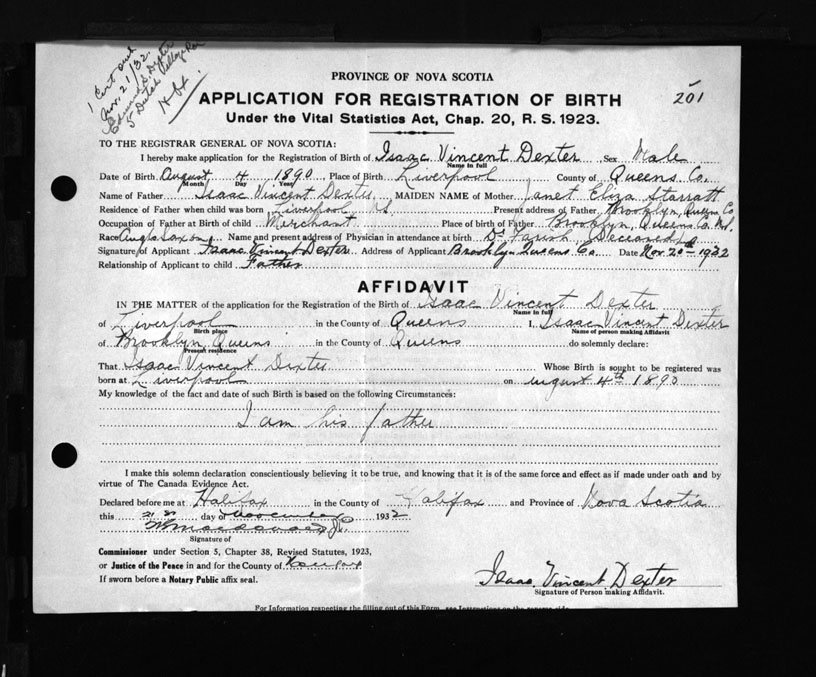 1 Cert sent
Nov. 21/32.
Edmund S. Dexter
5 Dutch Village Rd
Hfx.
201
PROVINCE OF NOVA SCOTIA
APPLICATION FOR REGISTRATION OF BIRTH
Under the Vital Statistics Act, Chap. 20, R. S. 1923.
TO THE REGISTRAR GENERAL OF NOVA SCOTIA:
I hereby make application for the Registration of Birth of Isaac Vincent Dexter Sex Male
Name in full
Date of Birth August 4 1890 Place of Birth Liverpool County of Queens Co.
Month Day Year
Name of Father Isaac Vincent Dexter MAIDEN NAME of Mother Janet Eliza Starratt
Residence of Father when child was born Liverpool NS. Present address of Father Brooklyn, Queens Co
Occupation of Father at Birth of child Merchant Place of birth of Father Brooklyn, Queens Co. N.S.
Race Anglo Saxon Name and present address of Physician in attendance at birth Dr Farish, Deceased
Signature of Applicant Isaac Vincent Dexter Address of Applicant Brooklyn Queens Co. Date Nov. 20th 1932
Relationship of Applicant to child Father
AFFIDAVIT
IN THE MATTER of the application for the Registration of the Birth of Isaac Vincent Dexter
Name in full
of Liverpool in the County of Queens I, Isaac Vincent Dexter
Birth place Name of person making Affidavit
of Brooklyn, Queens in the County of Queens do solemnly declare:
Present residence
That Isaac Vincent Dexter Whose Birth is sought to be registered was
born at Liverpool on August 4th 1890
My knowledge of the fact and date of such Birth is based on the following Circumstances:
I am his father
I make this solemn declaration conscientiously believing it to be true, and knowing that it is of the same force and effect as if made under oath and by
virtue of The Canada Evidence Act.
Declared before me at Halifax in the County of Halifax and Province of Nova Scotia
this 21st day of November 1932
Signature of
Commissioner under Section 5, Chapter 38, Revised Statutes, 1923,
or Justice of the Peace in and for the County of
If sworn before a Notary Public affix seal.
Isaac Vincent Dexter
Signature of Person making Affidavit.
For Information respecting the filling out of this Form, see Instructions on the reverse side